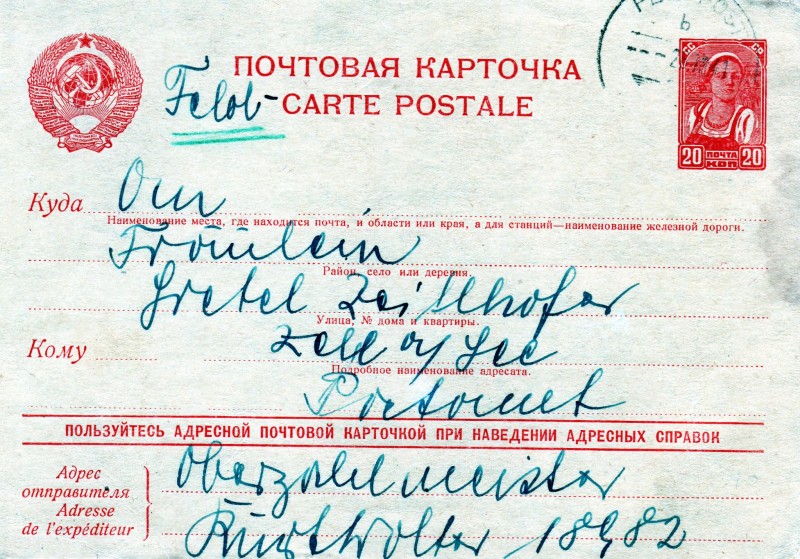 ПОЧТОВАЯ КАРТОЧКА
Feld-
CARTE POSTALE
СС СР
20 ПОЧТА КОП 20
Куда An
Наименование места, где находится почта, и области или края, а для станций—наименование железной дороги.
Fräulein
Район, село или деревня.
Gretel Zeillhofer
Улица, № дома и квартиры.
Кому Zell a/ See
Подробное наименование адресата.
Postamt
ПОЛЬЗУЙТЕСЬ АДРЕСНОЙ ПОЧТОВОЙ КАРТОЧКОЙ ПРИ НАВЕДЕНИИ АДРЕСНЫХ СПРАВОК
Адрес отправителя
Adresse de l'expéditeur
Oberzahlmeister
Kurt Wolter 18982